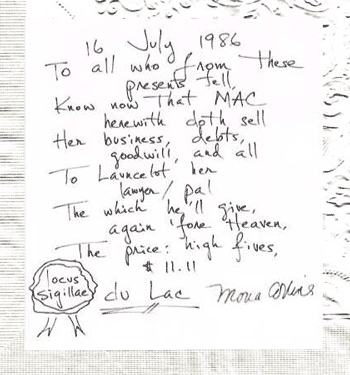 16 July 1986
To all who from these
presents tell,
Know now that MAC
herewith doth sell
Her business, debts,
goodwill, and all
To Launcelot her
lawyer/pal
The which he'll give,
again 'fore Heaven,
The price: high fives,
$11.11
locus
sigillae
du Lac
Mona